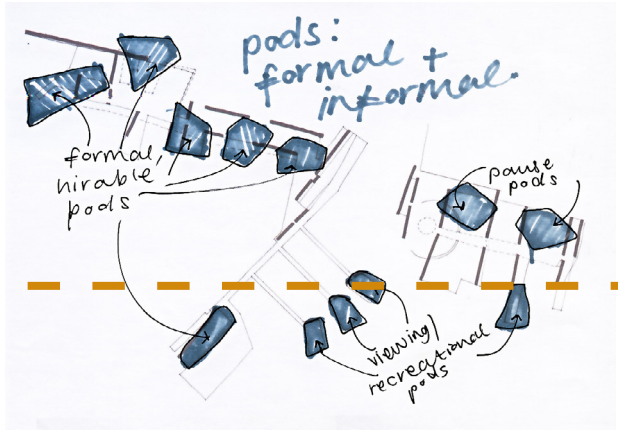 pods:
formal +
informal.
formal,
hirable
pods
pause
pods
viewing/
recreational
pods